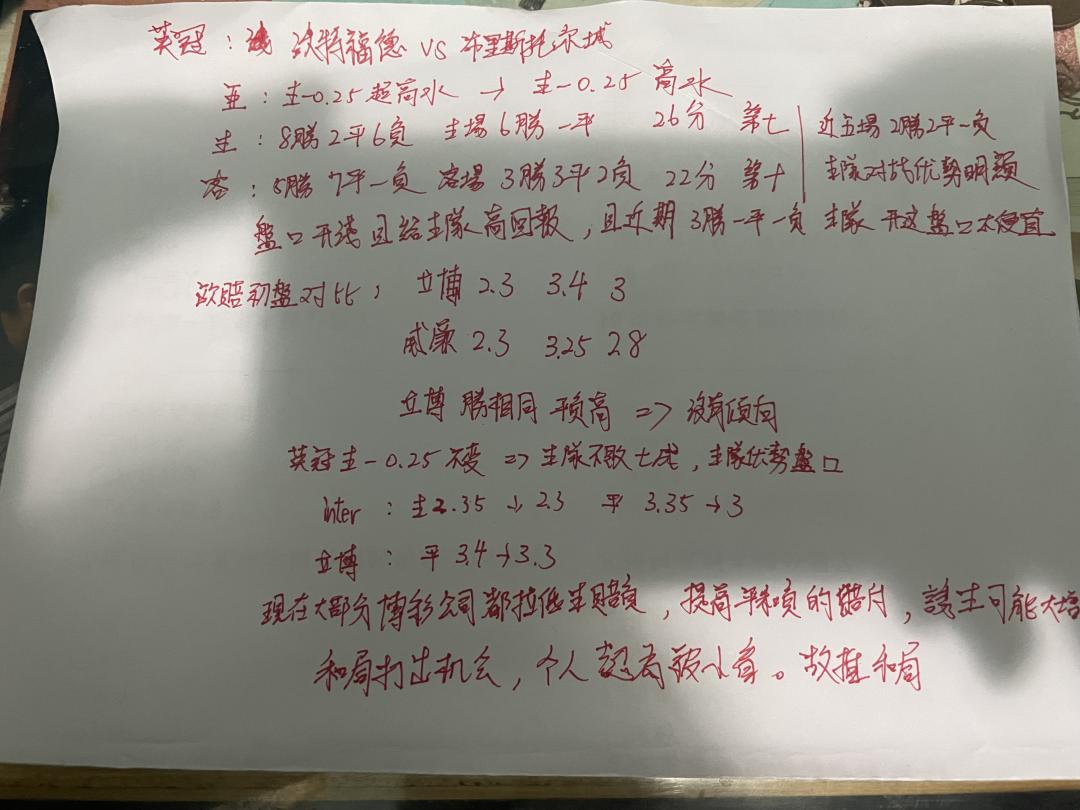 英冠：沃特福德 VS 布里斯托尔城
亚：主-0.25 超高水 → 主-0.25 高水
主：8勝2平6负 主場6勝一平 26分 第七 近五場2勝2平一负
客：5勝7平一负 客場3勝3平2负 22分 第十 主隊对战优勢明顯
盤口开浅且给主隊高回报，且近期3勝一平一负 主隊 开这盤口太便宜
欧赔初盤对比； 立博 2.3 3.4 3
威廉 2.3 3.25 2.8
立博 勝相同 平负高 => 没有倾向
英冠主-0.25 不变 => 主隊不敗七成，主隊优勢盤口
Inter：主2.35 → 2.3 平 3.35 → 3
立博：平 3.4 → 3.3
現在大部分博彩公司都拉低主賠，提高平和負的賠付，該主可能大增
和局打出机会，个人認為被小看。故推和局